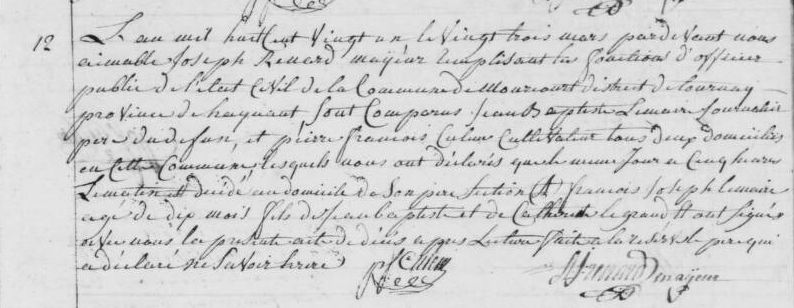 12 L'an mil huit cent vingt un le vingt trois mars pardevant nous
aimable Joseph Renard mayeur remplisant les fonctions d'officier
public de l'etat civil de la Commune de Mourcourt district de tournay
province de haynaut sont Comparus Jean Baptiste Lemaire Journalier
pere du defunt, et pierre francois Cultivateur tous deux domiciliés
en Cette Commune lesquels nous ont déclarés que le meme Jour a Cinq heures
Le matin est décédé au domicile de Son pere Section (A) francois Joseph lemaire
agé de dix mois fils de Jean baptiste et de Catherine le grand Et ont Signé
avec nous la presente acte de décés apres Lecture faite a la reserve le pere qui
a déclaré ne Savoir Ecrire
Renard mayeur